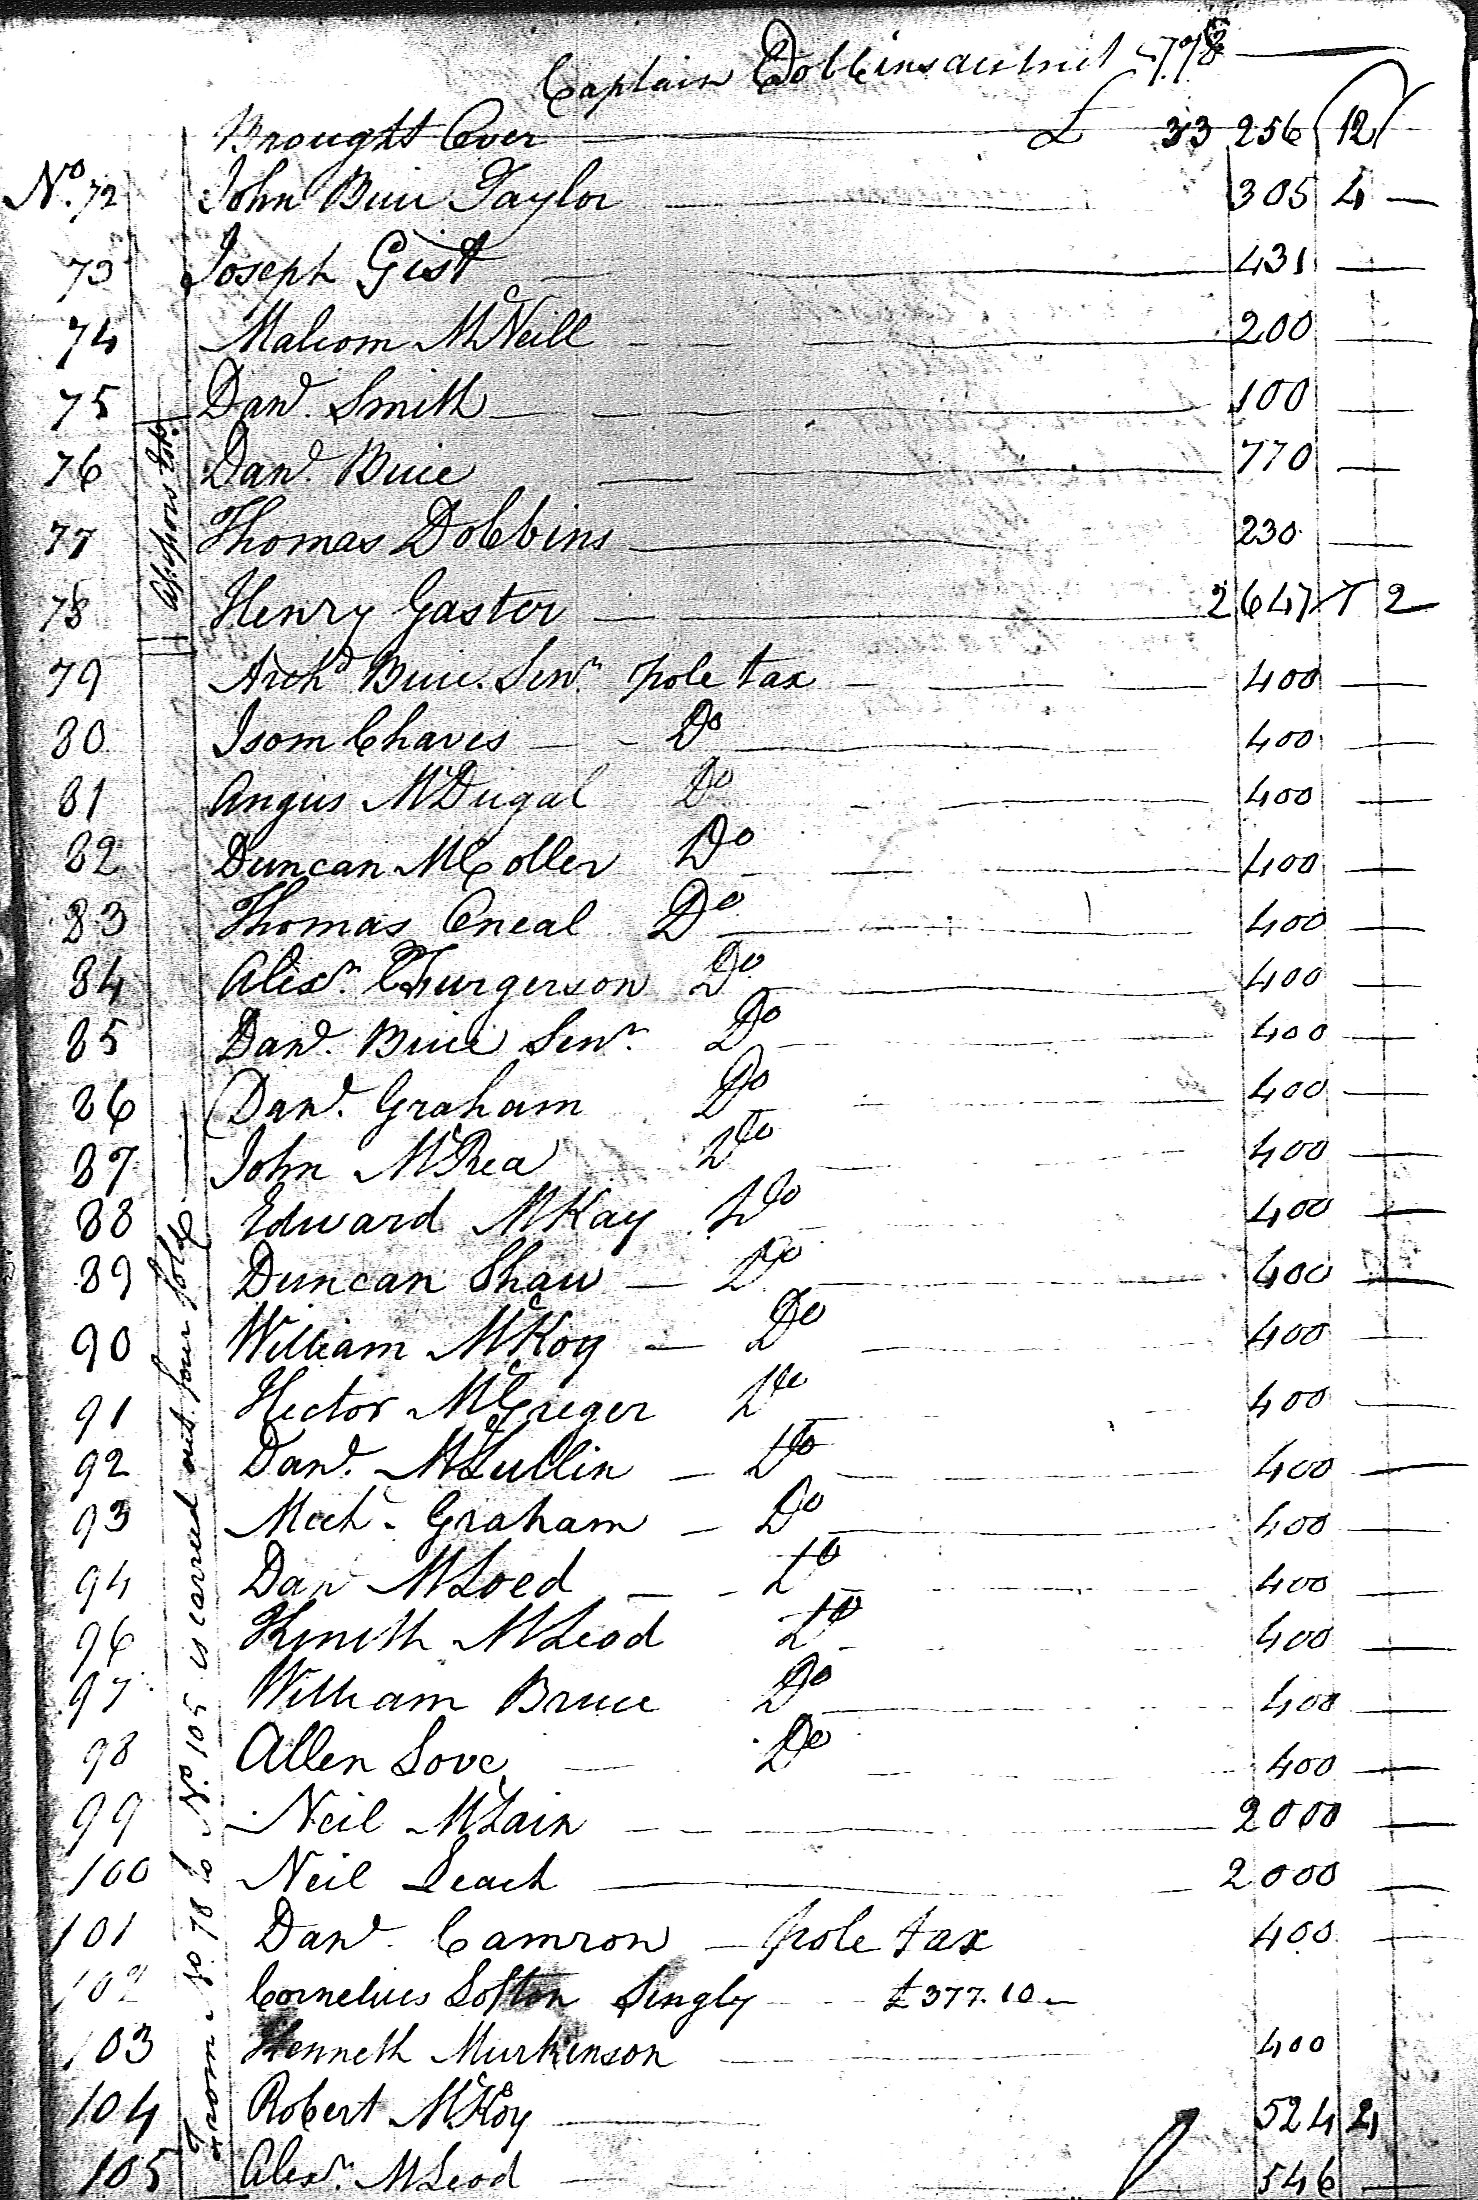 Captain Dobbins district 1778
Brought Over £ 33 256 12
No. 72 John Buie Taylor 305 4
73 Joseph Gist 431
74 Malcom McNeill 200
75 Dand. Smith 100
76 Dand. Buie 770
77 Thomas Dobbins 230
78 Henry Gaster 2647 2
79 Archd Buie Senr. pole tax 400
80 Isom Chaves Do 400
81 Angus McDugal Do 400
82 Duncan McColler Do 400
83 Thomas Oneal Do 400
84 Alexr. Furgerson Do 400
85 Dand. Buie Senr. Do 400
86 Dand. Graham Do 400
87 John McRea Do 400
88 Edward McKay Do 400
89 Duncan Shaw Do 400
90 William McKoy Do 400
91 Hector McGreger Do 400
92 Dand. McLullin Do 400
93 Mech. Graham Do 400
94 Dand McLoed Do 400
96 Kenith McLeod Do 400
97 William Bruce Do 400
98 Allen Love Do 400
99 Neil McLain 2000
100 Neil Leach 2000
101 Dand. Camron pole tax 400
102 Cornelius Lofton Singly £377.10
103 Kenneth Murkinson 400
104 Robert McKoy 524 2
105 Alexr. McLeod 546
From No 78 to No 105 is carried out four fold